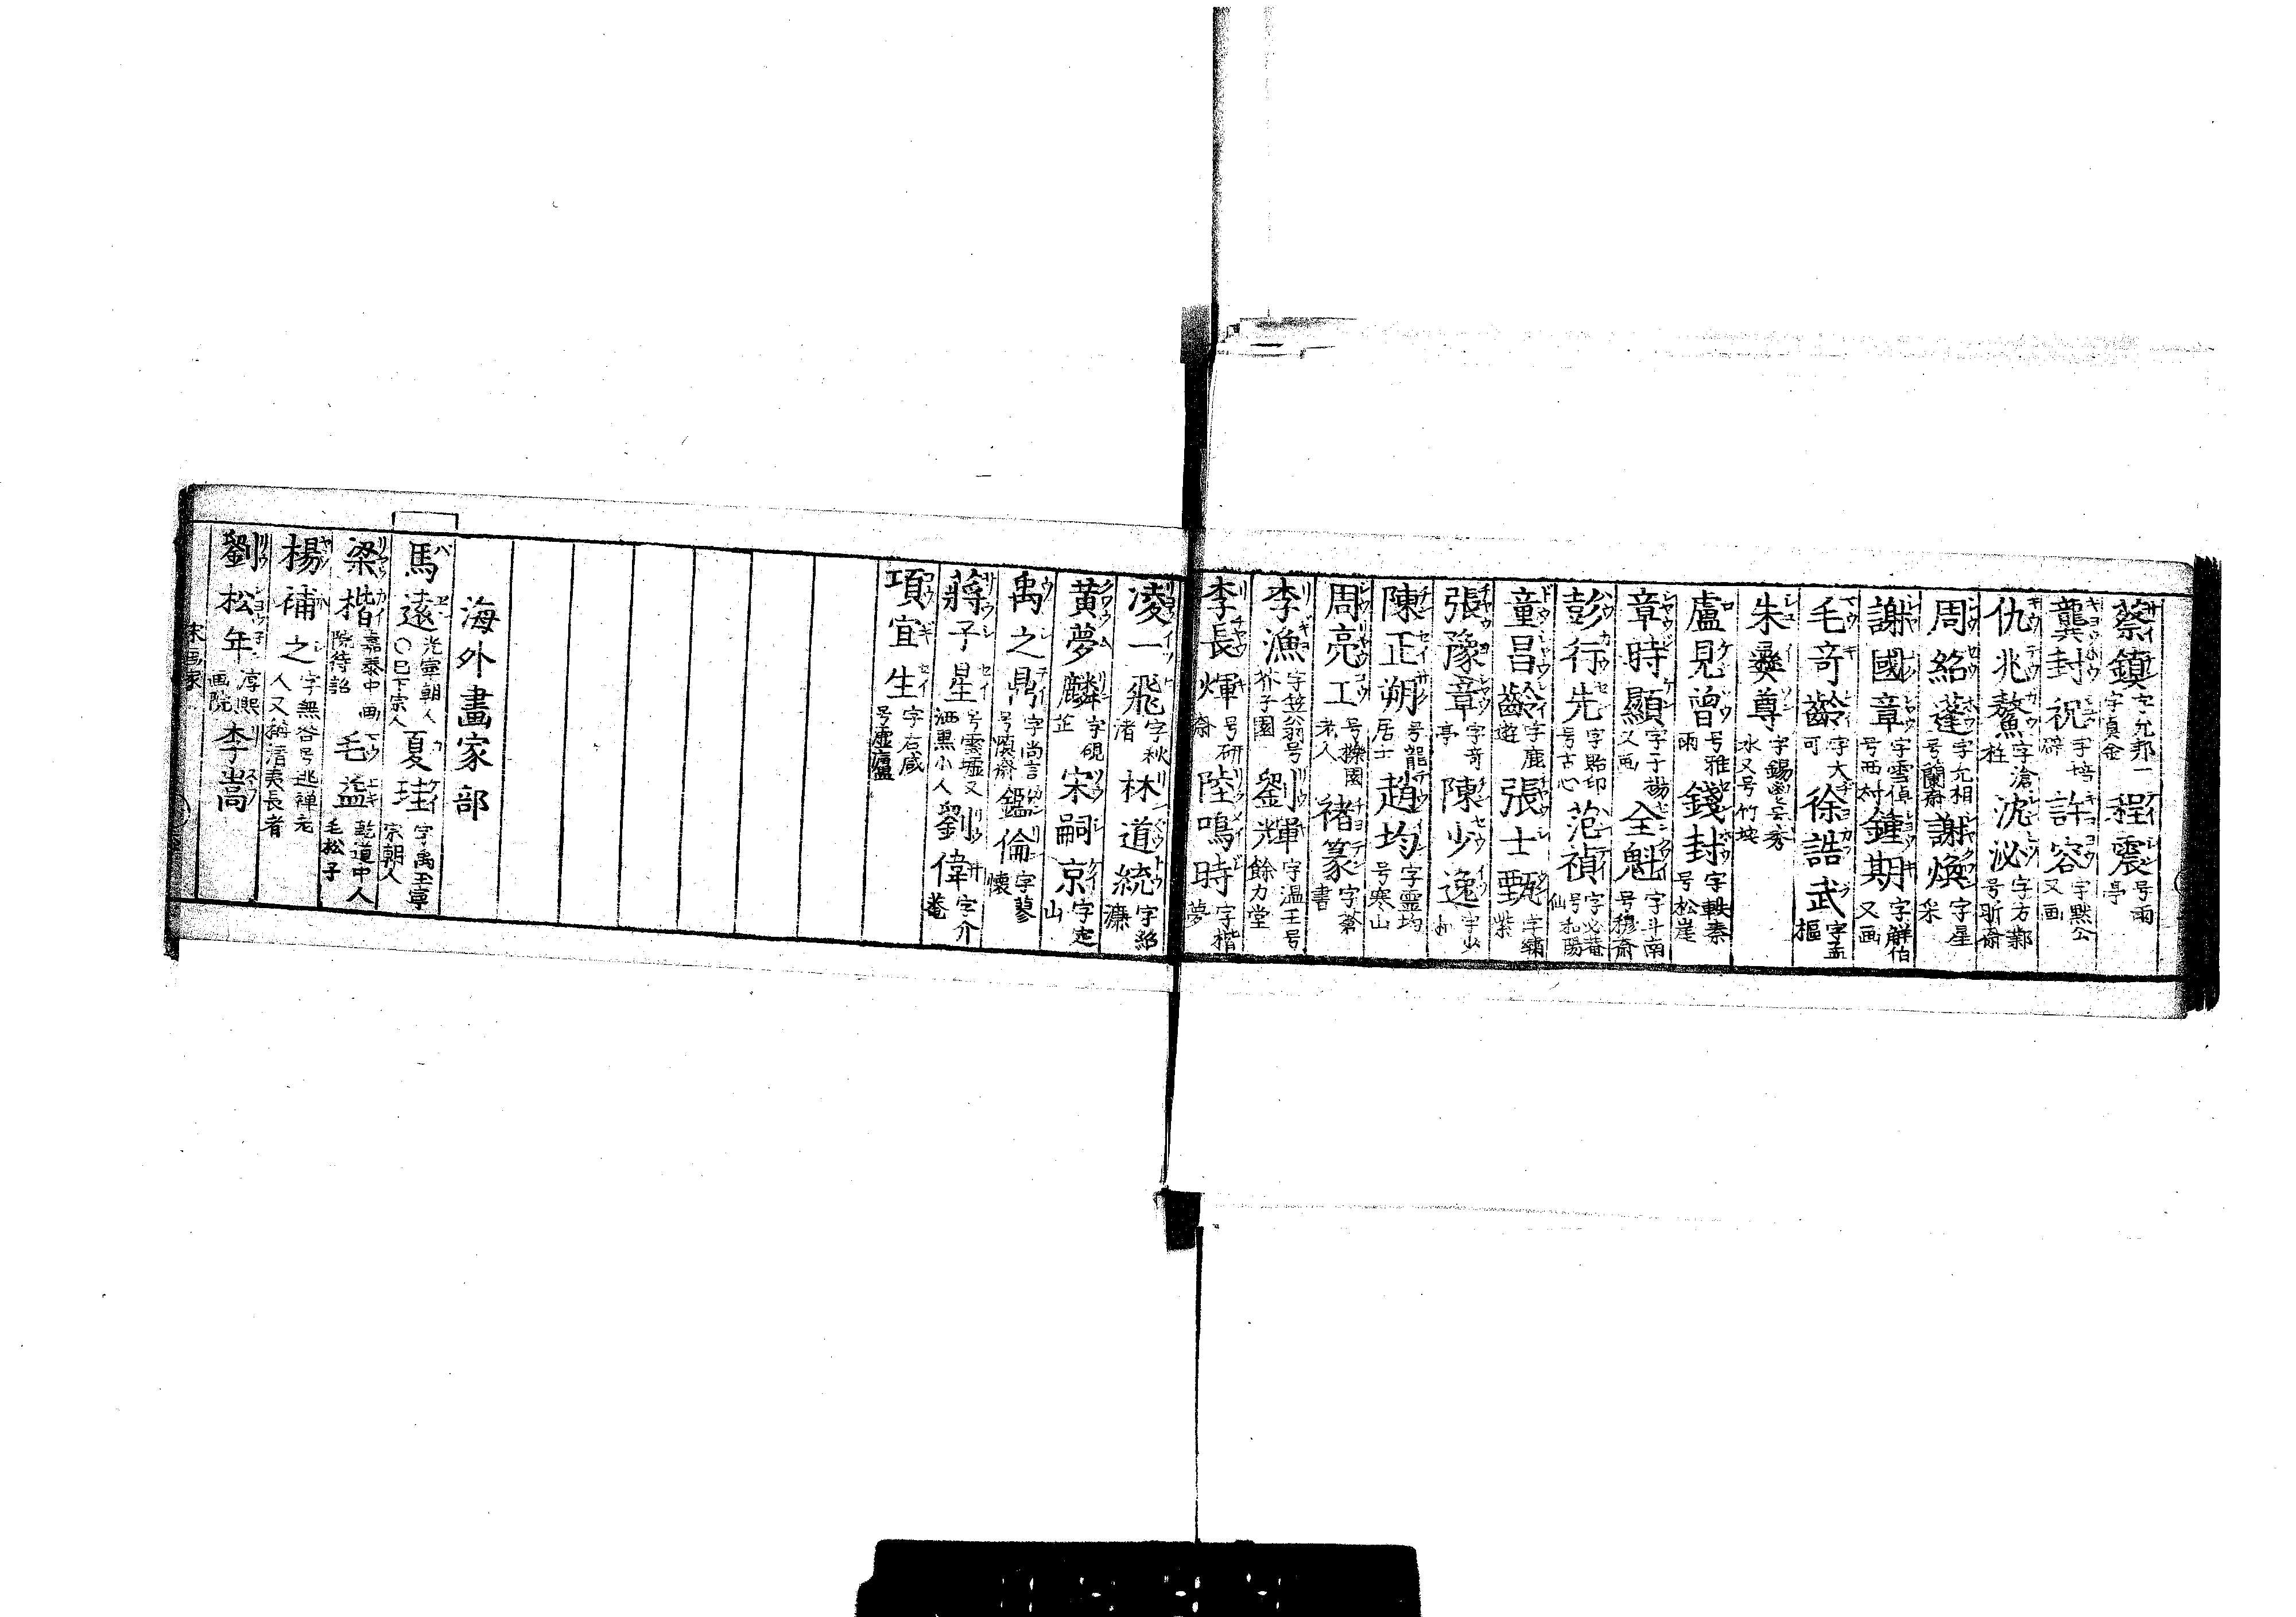 蔡鎮 字允邦一字貞金 程震 号雨亭
龔封祝 字培碎 許容 字黙公又画
仇兆鰲 字滄柱 沈泌 字方鄴号昕斎
周紹蓬 字允相号蘭斎 謝煥 字星采
謝國章 字雲倬号西村 鍾期 字解伯又画
毛奇齡 字大可 徐誥武 字孟樞
朱彝尊 字錫鬯号秀水又号竹坨
盧見曾 号雅雨 錢封 字軼秦号松崖
章時顯 字子楊又画 全魁 字斗南号穆斎
彭行先 字貽印号古心 范禎 字必菴号和陽仙
童昌齡 字鹿遊 張士甄 字繡紫
張豫章 字奇亭 陳少逸 字少
陳正朔 号龍居士 趙均 字霊均号寒山
周亮工 号櫟園老人 褚篆 字蒼書
李漁 字笠翁号芥子園 劉輝 字温王号餘力堂
李長煇 号研斎 陸鳴時 字楷夢
凌一飛 字秋渚 林道統 字紹濂
黄夢麟 字硯芷 宋嗣京 字定山
禹之鼎 字尚言号慎斎 鑑倫 字蓼懐
蔣子星 号雲墟又洒黒小人 劉偉 字介菴
項宜生 字右咸号虚廬
海外畫家部
馬遠 光寧朝人〇巳下宗人 夏珪 字禹玉寧宗朝人
梁楷 嘉泰中画院待詔 毛益 乾道中人毛松子
楊補之 字無咎号逃禅老人又稱清夷長者
劉松年 淳熙画院 李嵩
宋画家